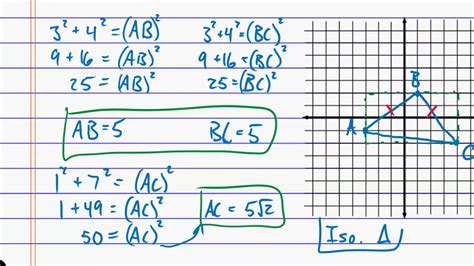 3² + 4² = (AB)²
9 + 16 = (AB)²
25 = (AB)²
3² + 4² = (BC)²
9 + 16 = (BC)²
25 = (BC)²
AB = 5 BC = 5
1² + 7² = (AC)²
1 + 49 = (AC)²
50 = (AC)²
AC = 5√2
A
B
C
Iso. Δ